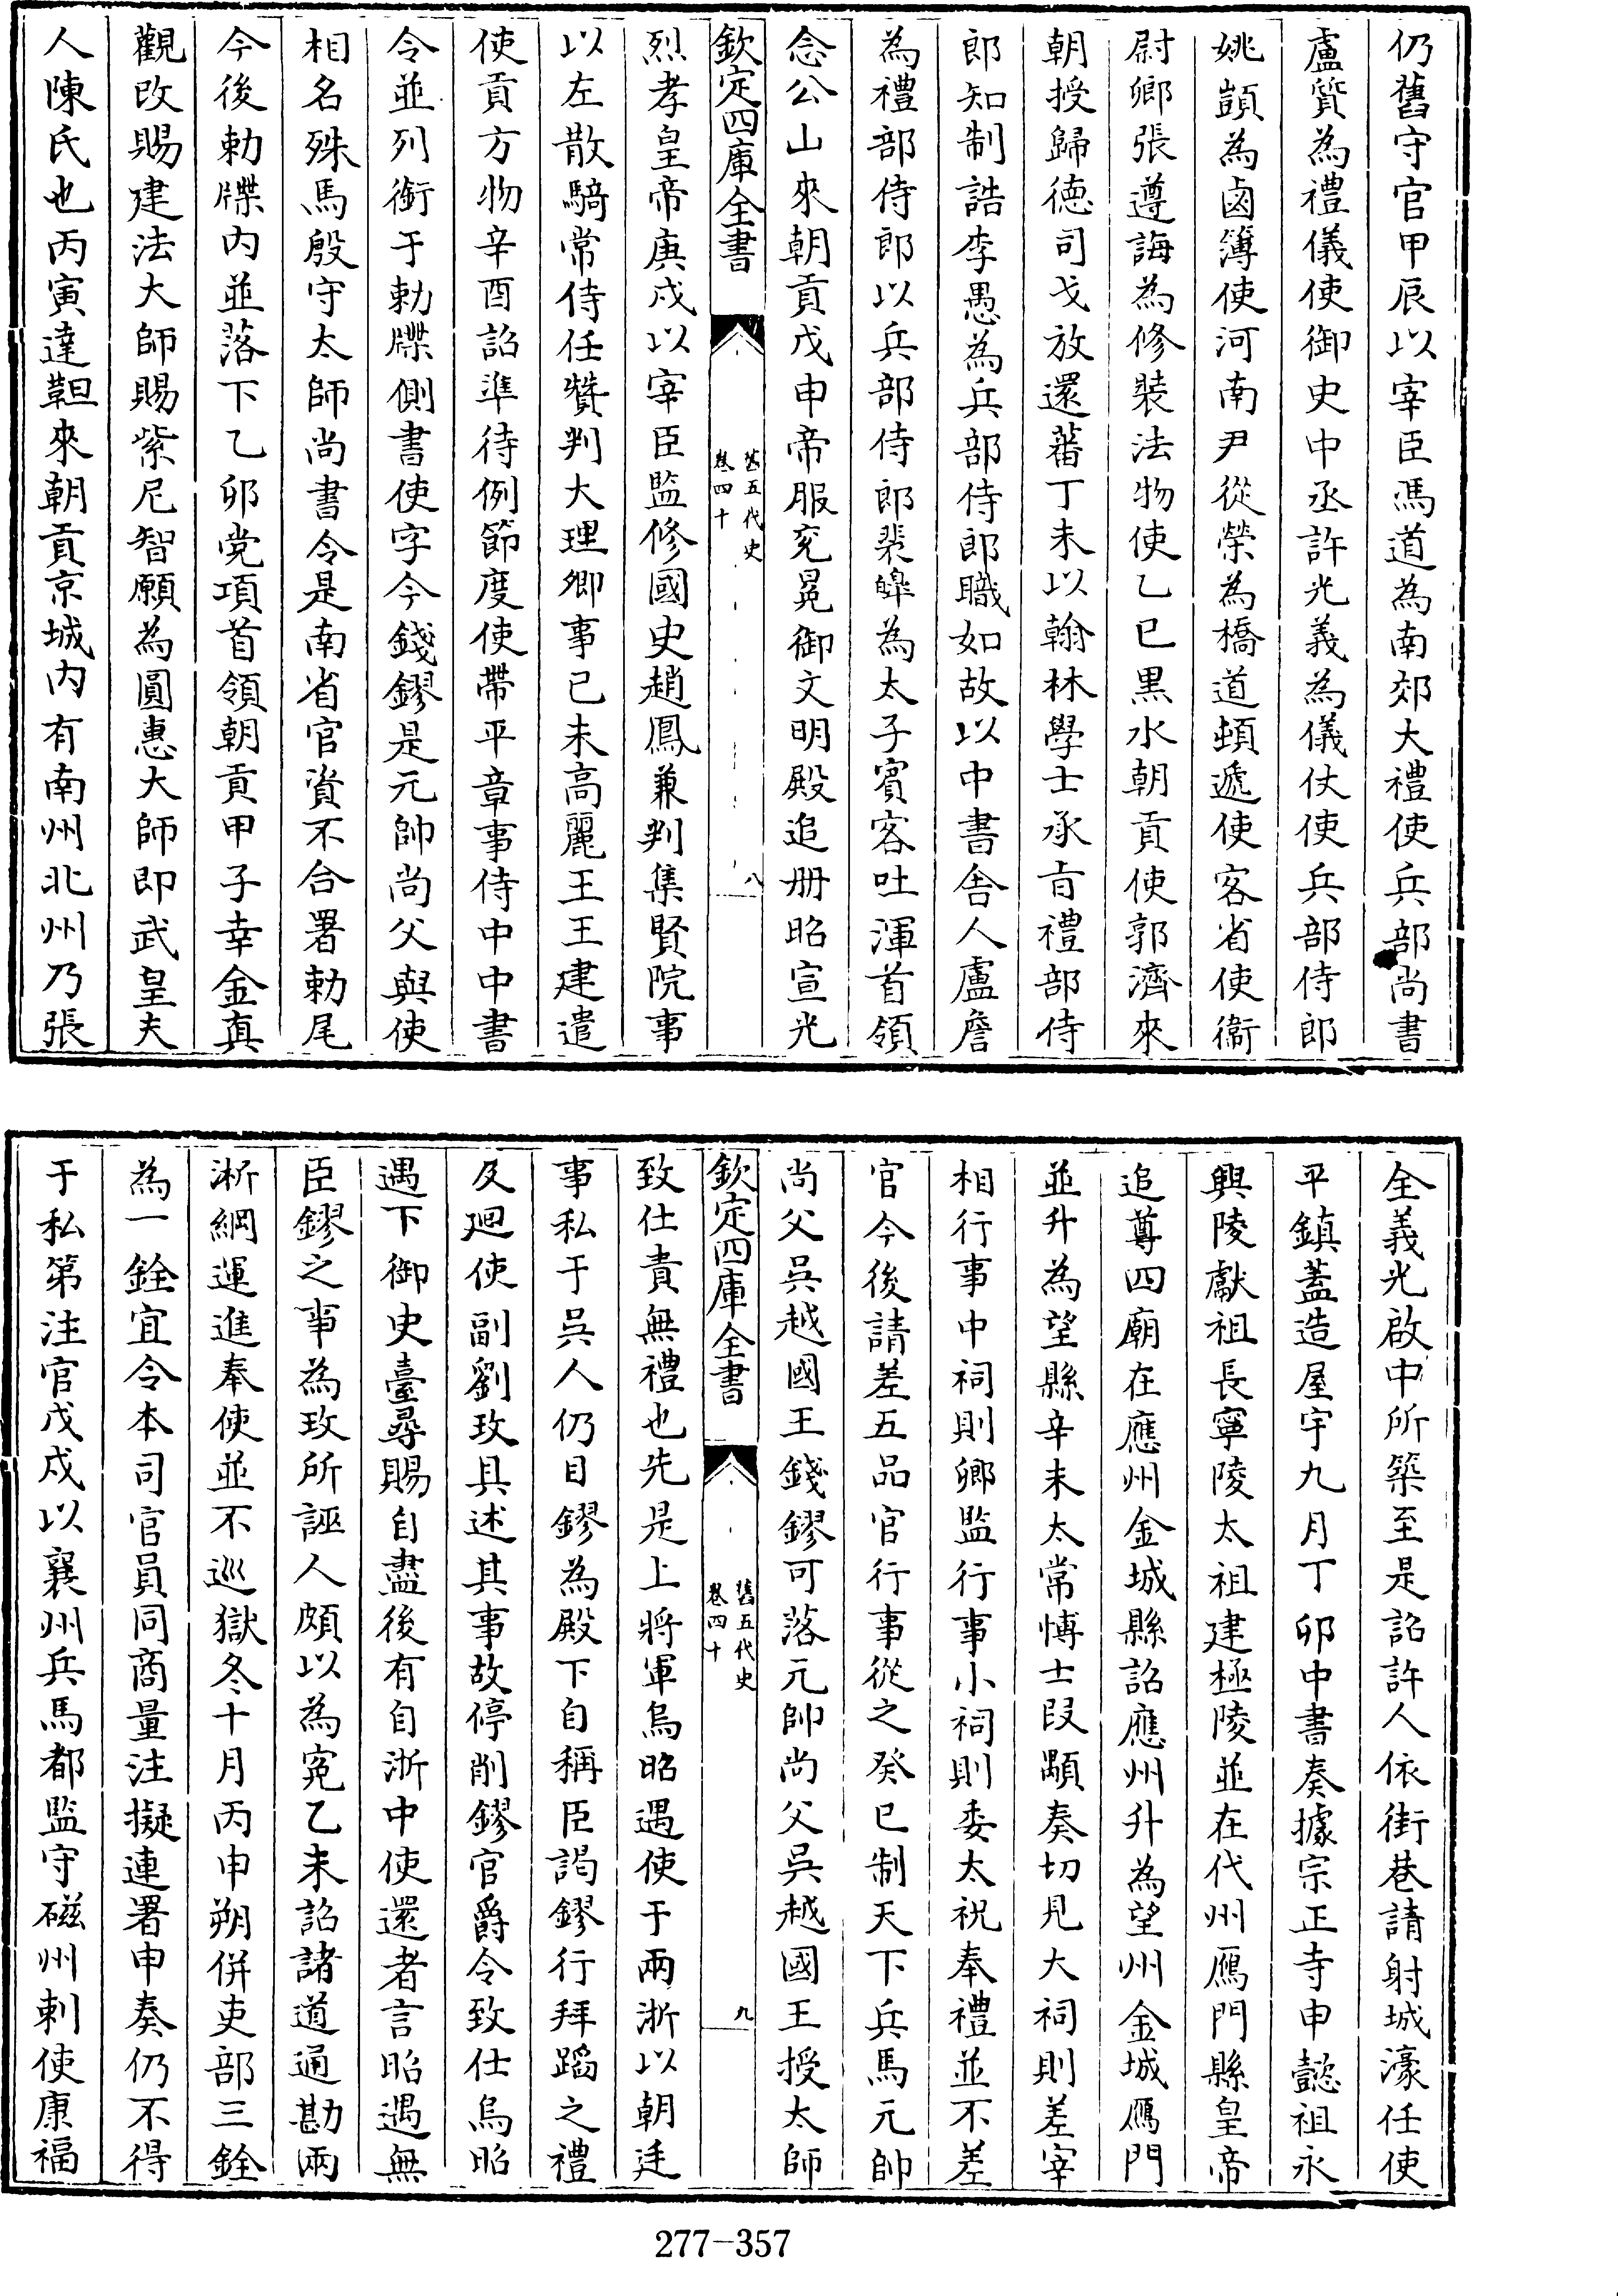 仍舊守官甲辰以宰臣馮道為南郊大禮使兵部尚書
盧質為禮儀使御史中丞許光義為儀仗使兵部侍郎
姚顗為鹵簿使河南尹從榮為橋道頓遞使客省使衞
尉卿張遵誨為修裝法物使乙巳黒水朝貢使郭濟來
朝授歸德司戈放還蕃丁未以翰林學士承㫖禮部侍
郎知制誥李愚為兵部侍郎職如故以中書舎人盧詹
為禮部侍郎以兵部侍郎裴皞為太子賓客吐渾首領
念公山來朝貢戊申帝服兖冕御文明殿追册昭宣光
欽定四庫全書
舊五代史
卷四十
八
烈孝皇帝庚戌以宰臣監修國史趙鳳兼判集賢院事
以左散騎常侍任贊判大理卿事己未高麗王王建遣
使貢方物辛酉詔準待例節度使帶平章事侍中中書
令並列銜于勅牒側書使字今錢鏐是元帥尚父與使
相名殊馬殷守太師尚書令是南省官資不合署勅尾
今後勅牒内並落下乙卯党項首領朝貢甲子幸金真
觀改賜建法大師賜紫尼智願為圓惠大師即武皇夫
人陳氏也丙寅達靼來朝貢京城内有南州北州乃張
全義光啟中所築至是詔許人依街巷請射城濠任使
平鎮蓋造屋宇九月丁卯中書奏據宗正寺申懿祖永
興陵獻祖長寧陵太祖建極陵並在代州鴈門縣皇帝
追尊四廟在應州金城縣詔應州升為望州金城鴈門
並升為望縣辛未太常博士段顒奏切見大祠則差宰
相行事中祠則卿監行事小祠則委太祝奉禮並不差
官今後請差五品官行事從之癸巳制天下兵馬元帥
尚父吳越國王錢鏐可落元帥尚父吳越國王授太師
欽定四庫全書
舊五代史
卷四十
九
致仕責無禮也先是上將軍烏昭遇使于兩浙以朝廷
事私于吳人仍目鏐為殿下自稱臣謁鏐行拜蹈之禮
及廻使副劉玫具述其事故停削鏐官爵令致仕烏昭
遇下御史臺尋賜自盡後有自浙中使還者言昭遇無
臣鏐之事為玫所誣人頗以為寃乙未詔諸道通勘兩
浙綱運進奉使並不巡獄冬十月丙申朔併吏部三銓
為一銓宜令本司官員同商量注擬連署申奏仍不得
于私第注官戊戌以襄州兵馬都監守磁州刺使康福
277-357